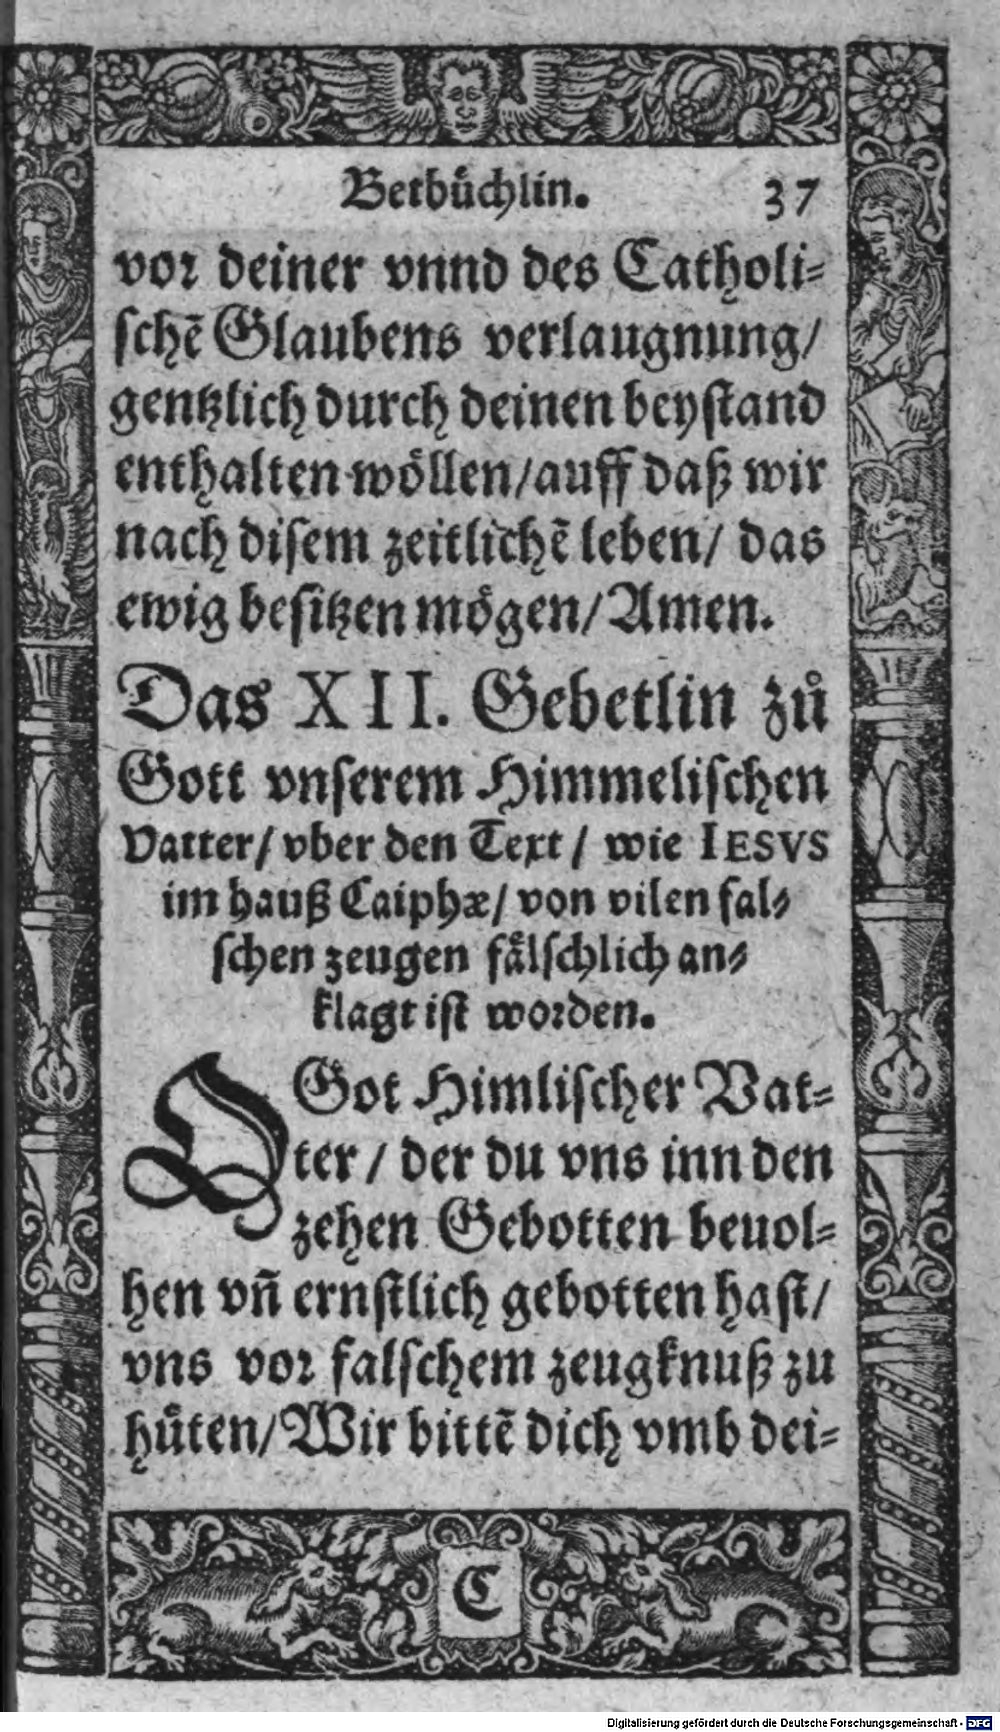 Betbuͤchlin. 37
vor deiner vnnd des Catholi-
schẽ Glaubens verlaugnung/
gentzlich durch deinen beystand
enthalten woͤllen/auff daß wir
nach disem zeitlichẽ leben/ das
ewig besitzen moͤgen/Amen.
Das XII. Gebetlin zuͦ
Gott vnserem Himmelischen
Vatter/ vber den Text/ wie IESVS
im hauß Caiphæ/ von vilen fal-
schen zeugen faͤlschlich an-
klagt ist worden.
O Got Himlischer Vat-
ter/ der du vns inn den
zehen Gebotten beuol-
hen vñ ernstlich gebotten hast/
vns vor falschem zeugknuß zu
huͤten/Wir bittẽ dich vmb dei-
C
Digitalisierung gefördert durch die Deutsche Forschungsgemeinschaft - DFG